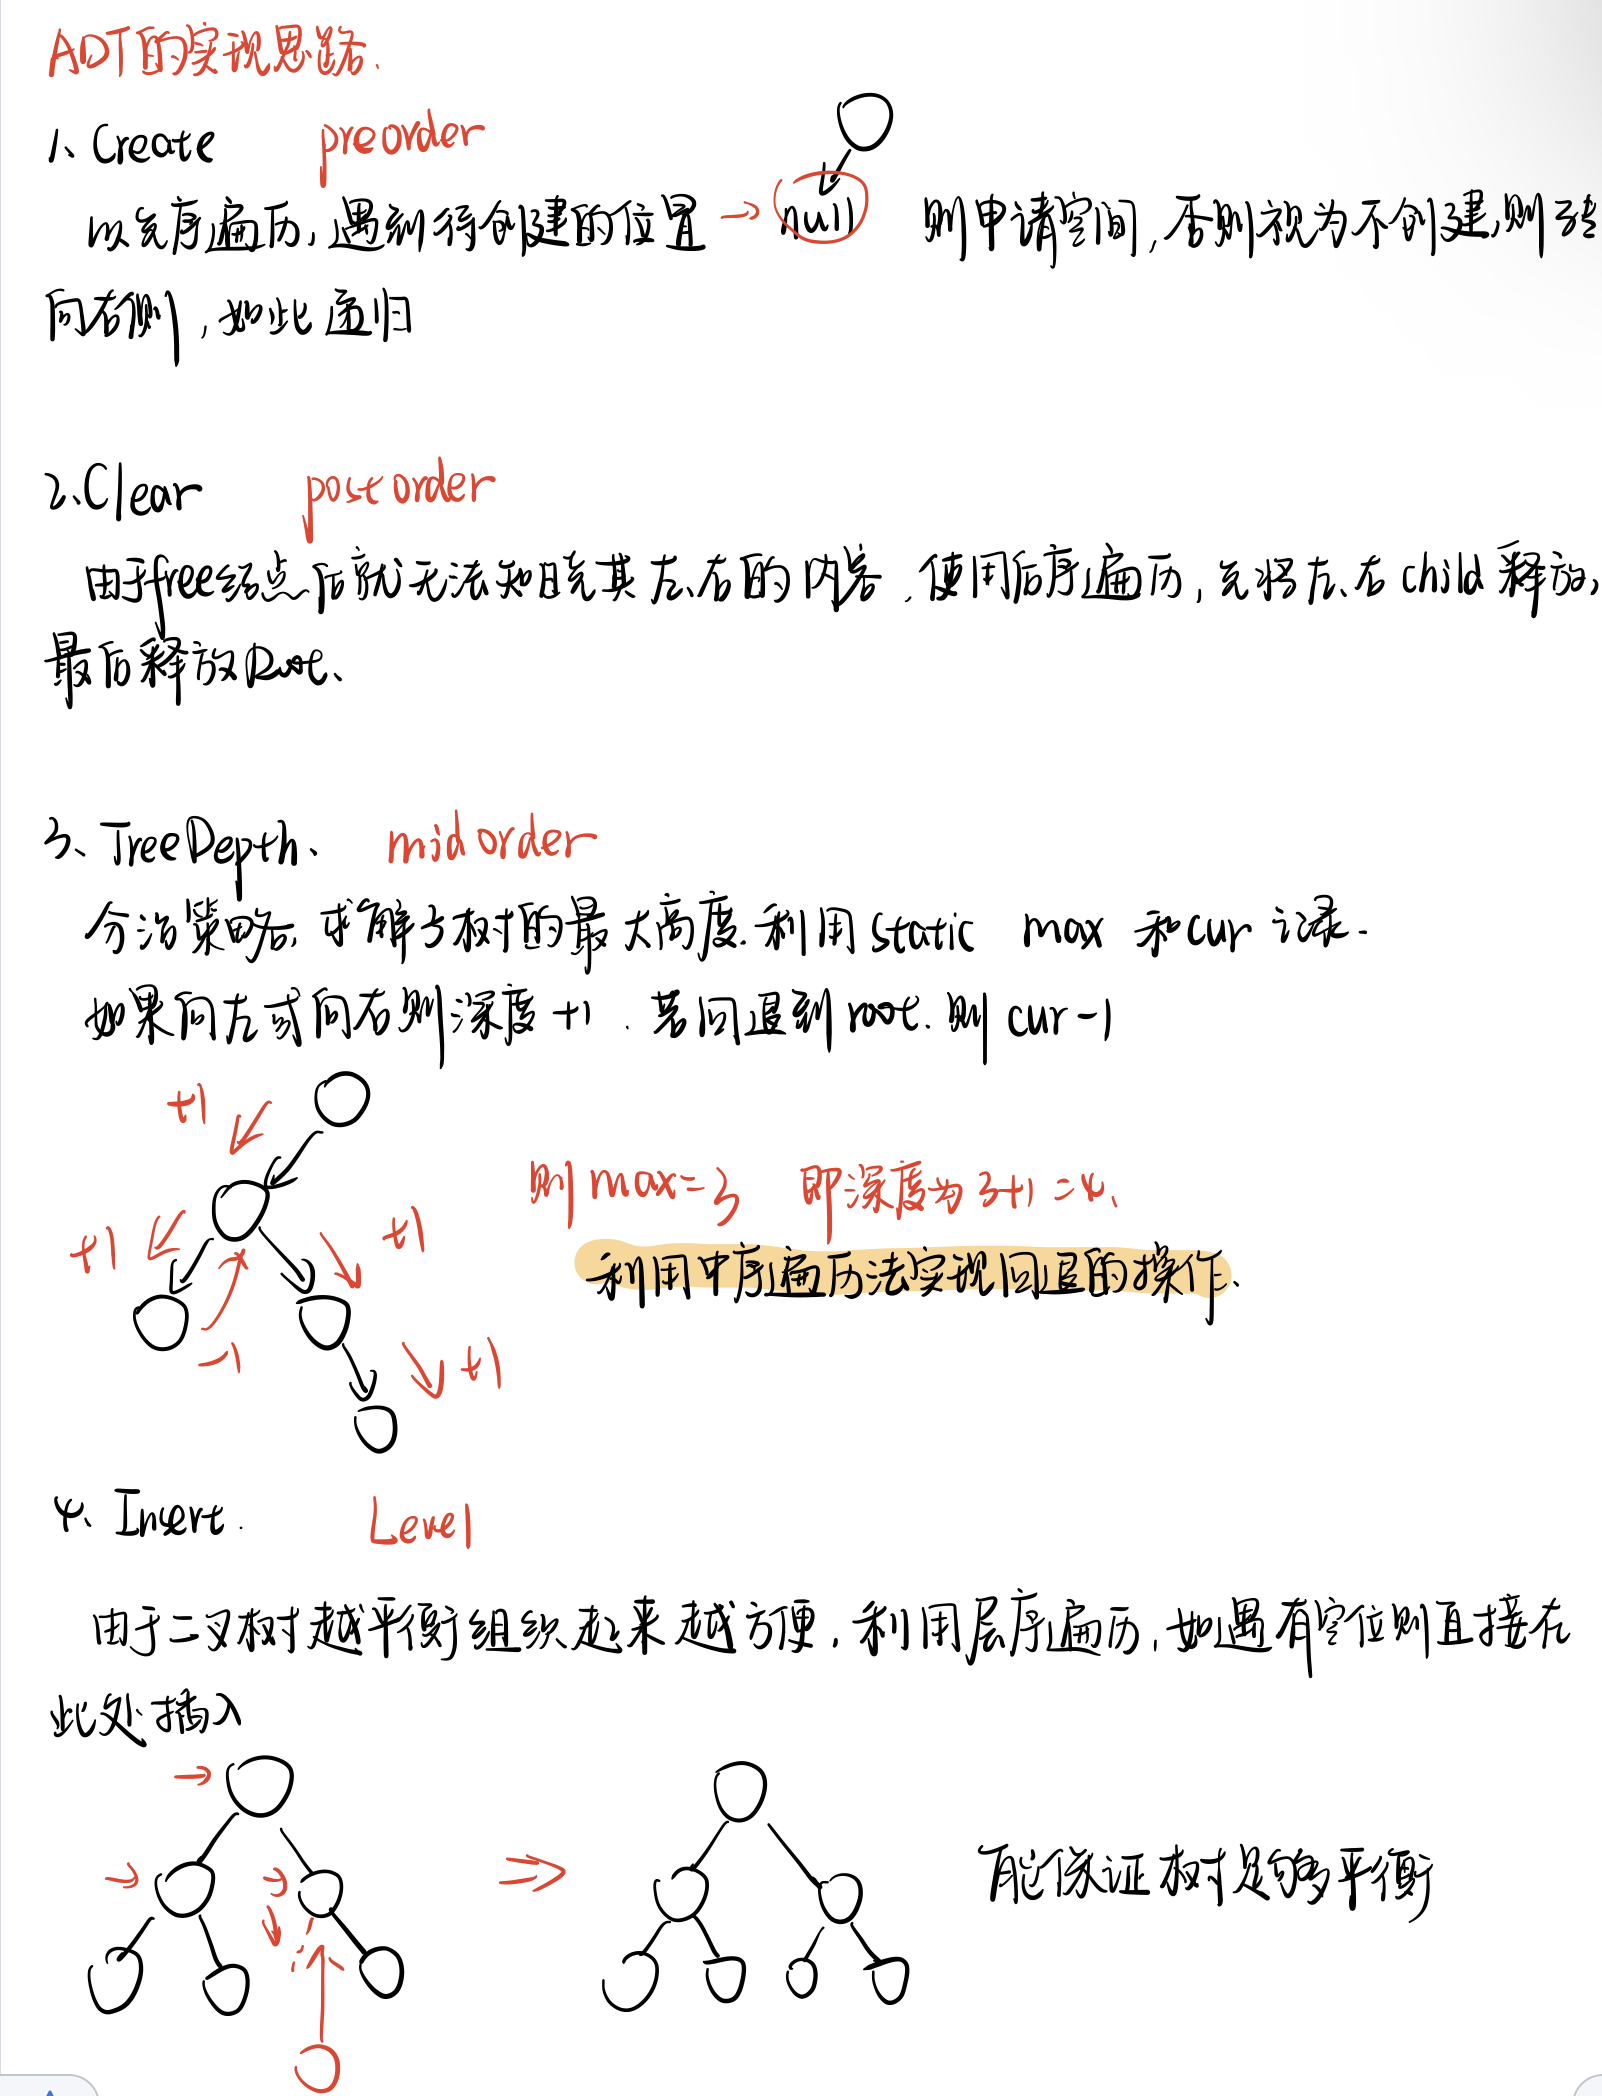 ADT的实现思路.
1、Create preorder
以先序遍历,遇到待创建的位置 → null 则申请空间,否则视为不创建,则转
向右侧,如此递归
2、Clear postorder
由于free结点后就无法知晓其左、右的内容.使用后序遍历,先将左、右child释放,
最后释放Root、
3、TreeDepth、 midorder
分治策略,求解子树的最大高度.利用static max 和cur记录.
如果向左或向右则深度+1.若回退到root.则cur-1
+1
则max=3 即深度为3+1=4、
+1 +1
利用中序遍历法实现回退的操作、
-1 +1
4、Insert. Level
由于二叉树越平衡组织起来越方便,利用层序遍历,如遇有空位则直接在
此处插入
能保证树足够平衡